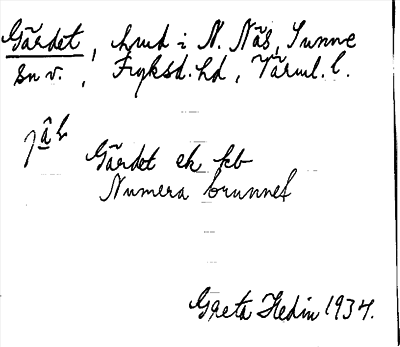 Gärdet, hmd i N. Näs, Sunne
sn v., Fryksd. hd, Värml. l.
Gärdet ek kb
Numera brunnet
Greta Hedin 1934.